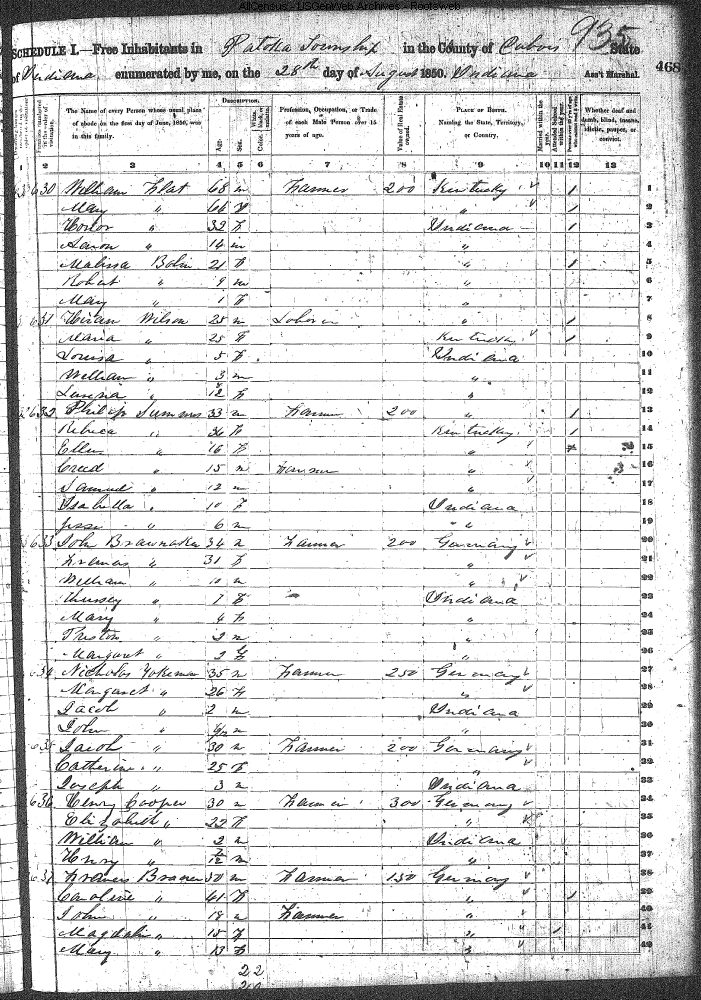 AllCensus - USGenWeb Archives - Rootsweb
935
SCHEDULE I.—Free Inhabitants in Patoka Township in the County of Dubois State
of Indiana enumerated by me, on the 28th day of August 1850. Indiana Ass't Marshal.
468
The Name of every Person whose usual place of abode on the first day of June, 1850, was in this family.
Description.
Age.
Sex.
Color.
Profession, Occupation, or Trade of each Male Person over 15 years of age.
Value of Real Estate owned.
Place of Birth. Naming the State, Territory, or Country.
Married within the year.
Attended School within the year.
Whether deaf and dumb, blind, insane, idiotic, pauper, or convict.
1 2 3 4 5 6 7 8 9 10 11 12 13
630 William Flat 68 m Farmer 200 Kentucky 1 1
Mary " 66 f " 1 2
32 f Indiana 1 3
Aaron " 14 m " 4
Malissa 21 f " 1 5
Robert " 9 m " 6
Mary " 1 f " 7
631 Hiram Wilson 25 m Laborer " 1 8
Maria " 25 f Kentucky 1 9
Louisa " 5 f Indiana 10
William " 3 m " 11
" f " 12
632 Philip Summers 33 m Farmer 200 " 1 13
Rebica " 36 f Kentucky 1 14
Ellen " 16 f " 15
Creed " 15 m Farmer " 16
Samuel " 12 m " 17
Isabella " 10 f Indiana 18
Jesse " 6 m " 19
633 John 34 m Farmer 200 Germany 20
" 31 f " 21
William " 10 m " 22
" 7 f Indiana 23
Mary " 4 f " 24
" 2 m " 25
Margaret " 2 f " 26
634 Nicholas Yokemer 35 m Farmer 250 Germany 27
Margaret " 26 f " 28
Jacob " 2 m Indiana 29
John " m " 30
635 Jacob " 30 m Farmer 200 Germany 31
Catherine " 25 f " 32
Joseph " 3 m Indiana 33
636 Henry Cooper 30 m Farmer 300 Germany 34
Elizabeth " 22 f " 35
William " 2 m Indiana 36
Henry " m " 37
Francis 50 m Farmer 150 Germany 38
Caroline " 41 f " 1 39
John " 18 m Farmer " 40
" 15 f " 1 41
Mary " 13 f " 42
22